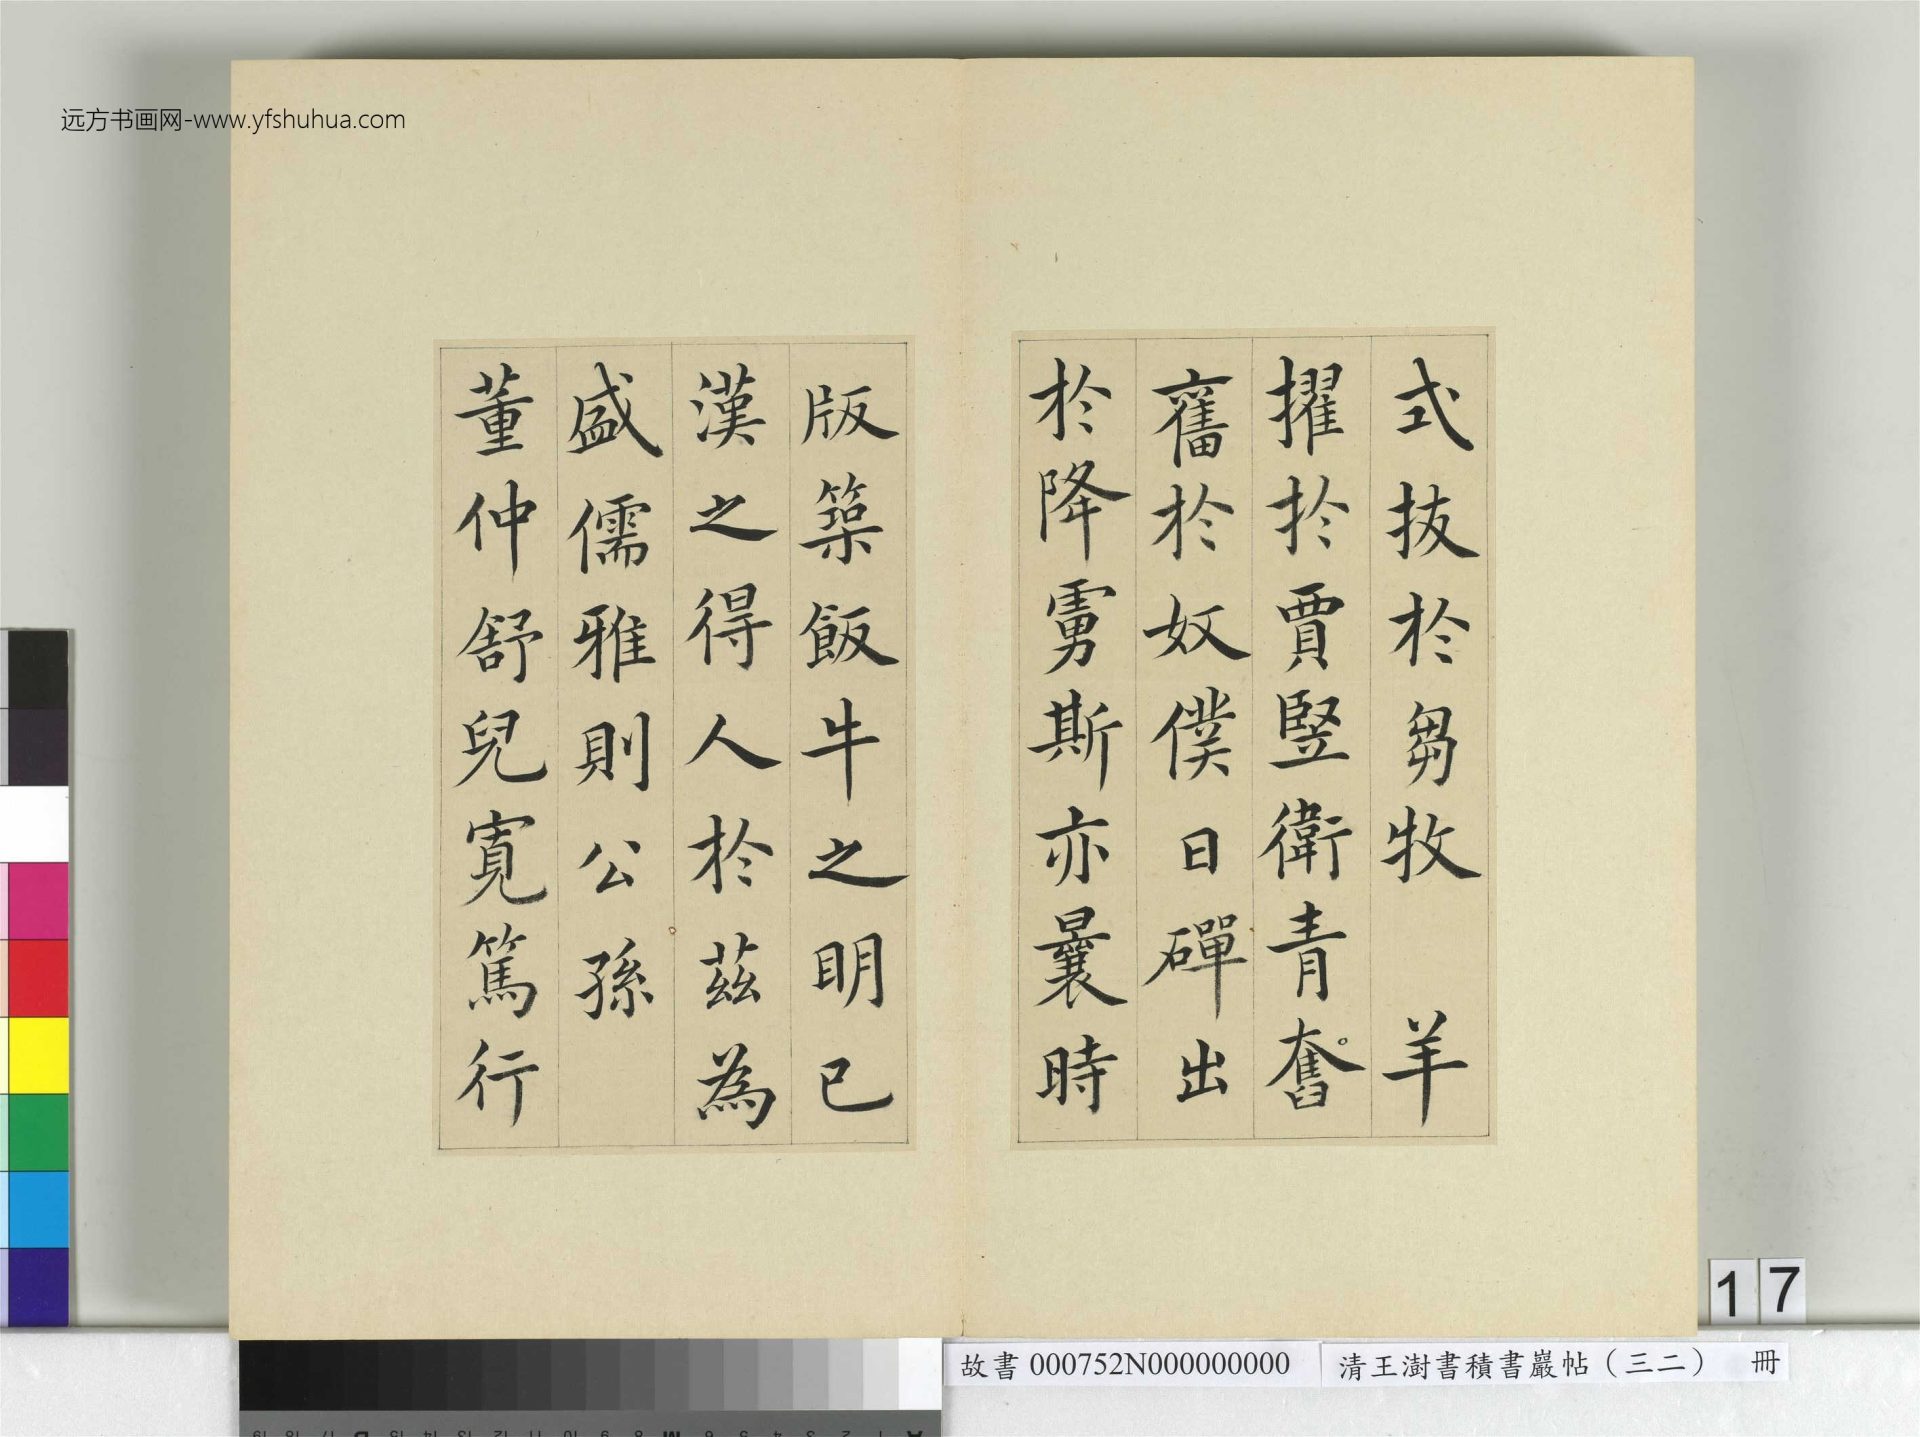 远方书画网-www.yfshuhua.com
式拔於芻牧 羊
擢於賈豎衛青奮
舊於奴僕日磾出
於降虜斯亦曩時
版築飯牛之明已
漢之得人於茲為
盛儒雅則公孫
董仲舒兒寬篤行
17
故書 000752N000000000
清王澍書積書巖帖（三二） 冊